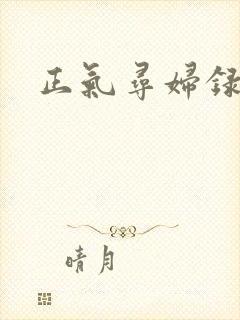 正氣尋婦録
晴月